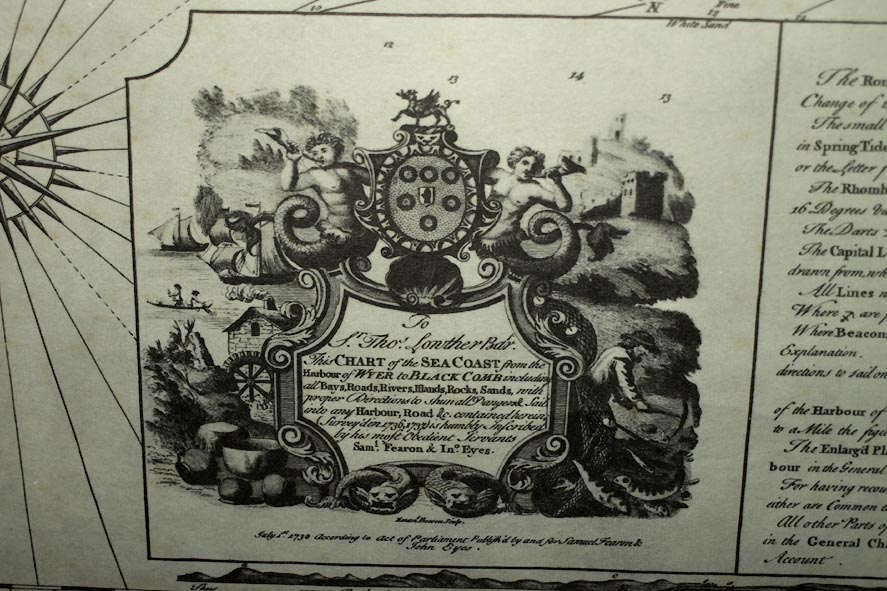 10
N
Fine
12
12
White Sand
12
13
14
13
To
Sr. Tho.s Lowther Bar.t
This CHART of the SEA COAST from the
Harbour of WYER to BLACK COMB including
all Bays, Roads, Rivers, Islands, Rocks, Sands, with
proper Directions to shun all Dangers & Sail
into any Harbour, Road &c. contained herein,
(Survey'd in 1736, 1737) is humbly Inscribed
by his most Obedient Servants
Saml. Fearon & Ino. Eyes.
Sculp.
July 1st. 1738 According to Act of Parliament Publish'd by and for Samuel Fearon &
John Eyes.
The
Change of
The small
in Spring Tide
or the Letter
The Rhomb
16 Degrees
The Darts
The Capital
drawn from,
All Lines
Where are
Where Beacon
Explanation.
directions to sail on
of the Harbour of
to a Mile the
The Enlarg'd
bour in the General
For having
either are Common
All other Parts of
in the General
Account